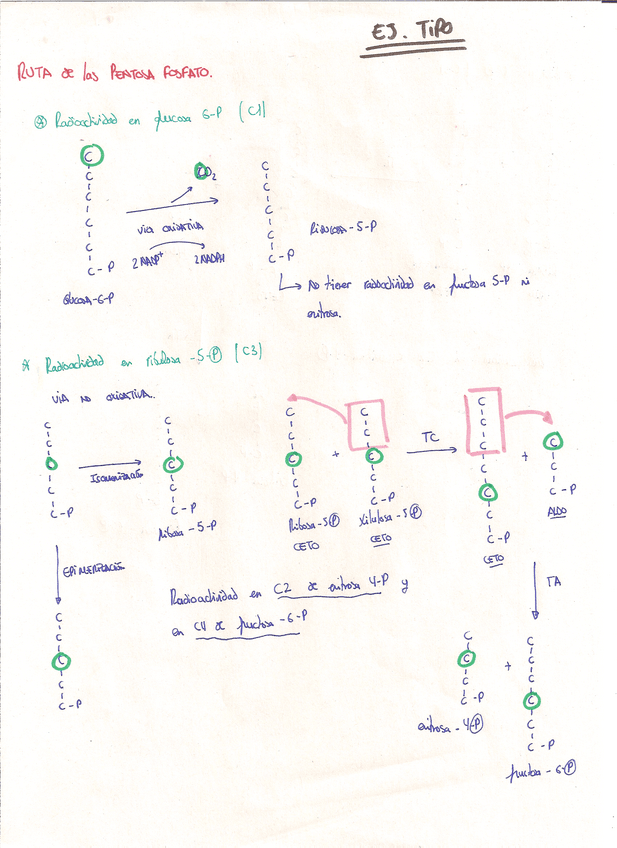 EJ. TIPO
RUTA de las PENTOSA FOSFATO.
Radioactividad en glucosa 6-P (C1)
C
C
C
C
C
C-P
Glucosa-6-P
CO2
VIA OXIDATIVA
2 NADP+ 2 NADPH
C
C
C
C
C-P
Ribulosa-5-P
No tiener radioactividad en fructosa 5-P ni
eritrosa.
* Radioactividad en ribulosa -5-P (C3)
VIA NO OXIDATIVA.
C
C
C
C-P
Isomerización
C
C
C
C
C-P
Ribosa-5-P
C
C
C
C
C-P
Ribosa-5P
CETO
+
C
C
C
C
C-P
Xilulosa-5P
CETO
TC
C
C
C
C
C
C
C-P
CETO
+
C
C
C-P
ALDO
EPIMERIZACIÓN
C
C
C
C
C-P
Radioactividad en C2 de eritrosa 4-P y
en C4 de fructosa-6-P
TA
C
C
C
C-P
eritrosa-4-P
+
C
C
C
C
C
C-P
fructosa-6-P